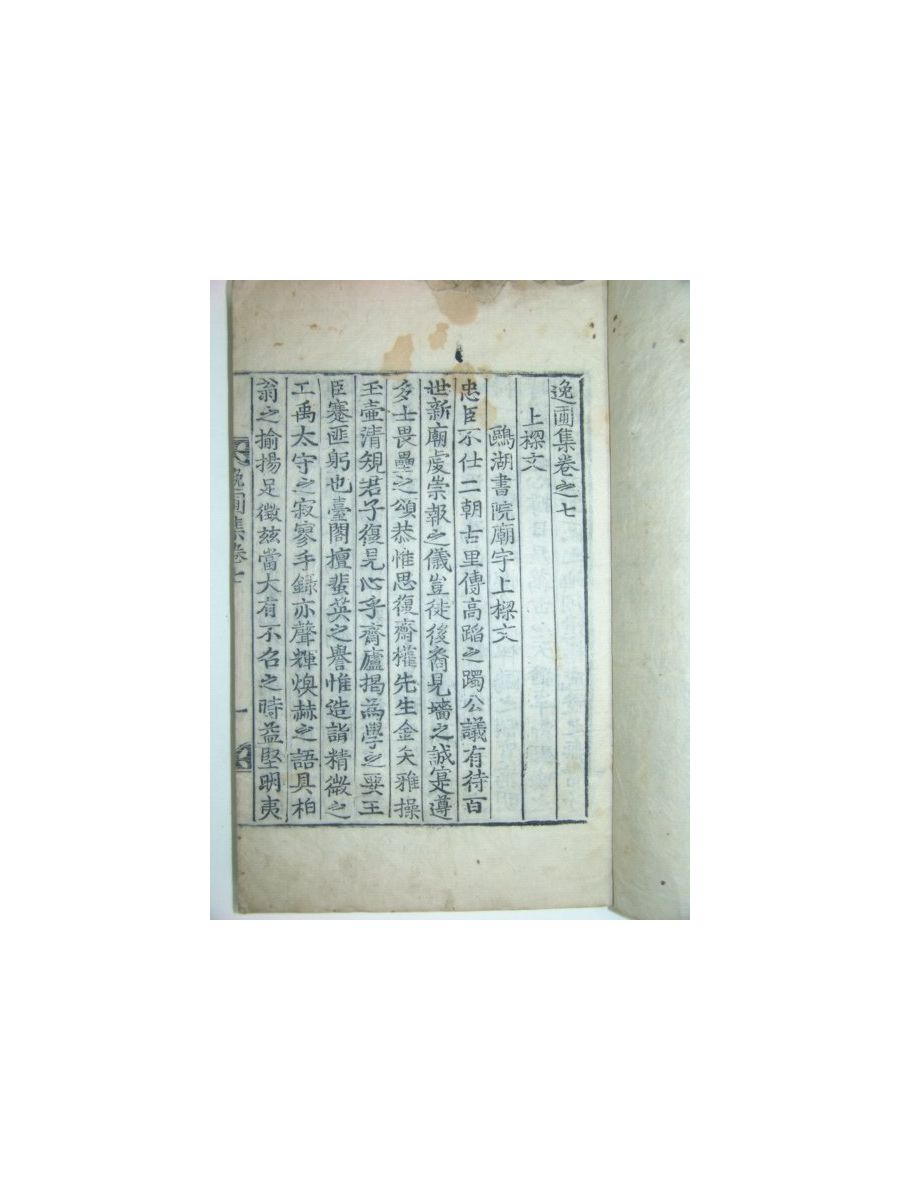 逸圃集卷之七
上樑文
鷗湖書院廟宇上樑文
忠臣不仕二朝古里傳高蹈之躅公議有待百
世新廟虔崇報之儀豈徒後裔見墻之誠寔遵
多士畏壘之頌恭惟思復齋權先生金矢雅操
玉壺清規君子復見心乎齋廬揭為學之要王
臣蹇匪躬也臺閣擅蜚英之譽惟造詣精微之
工禹太守之寂寥手錄亦聲輝煥赫之語具柏
翁之揄揚足徵玆當大有不名之時益堅明夷
逸圃集卷七
一